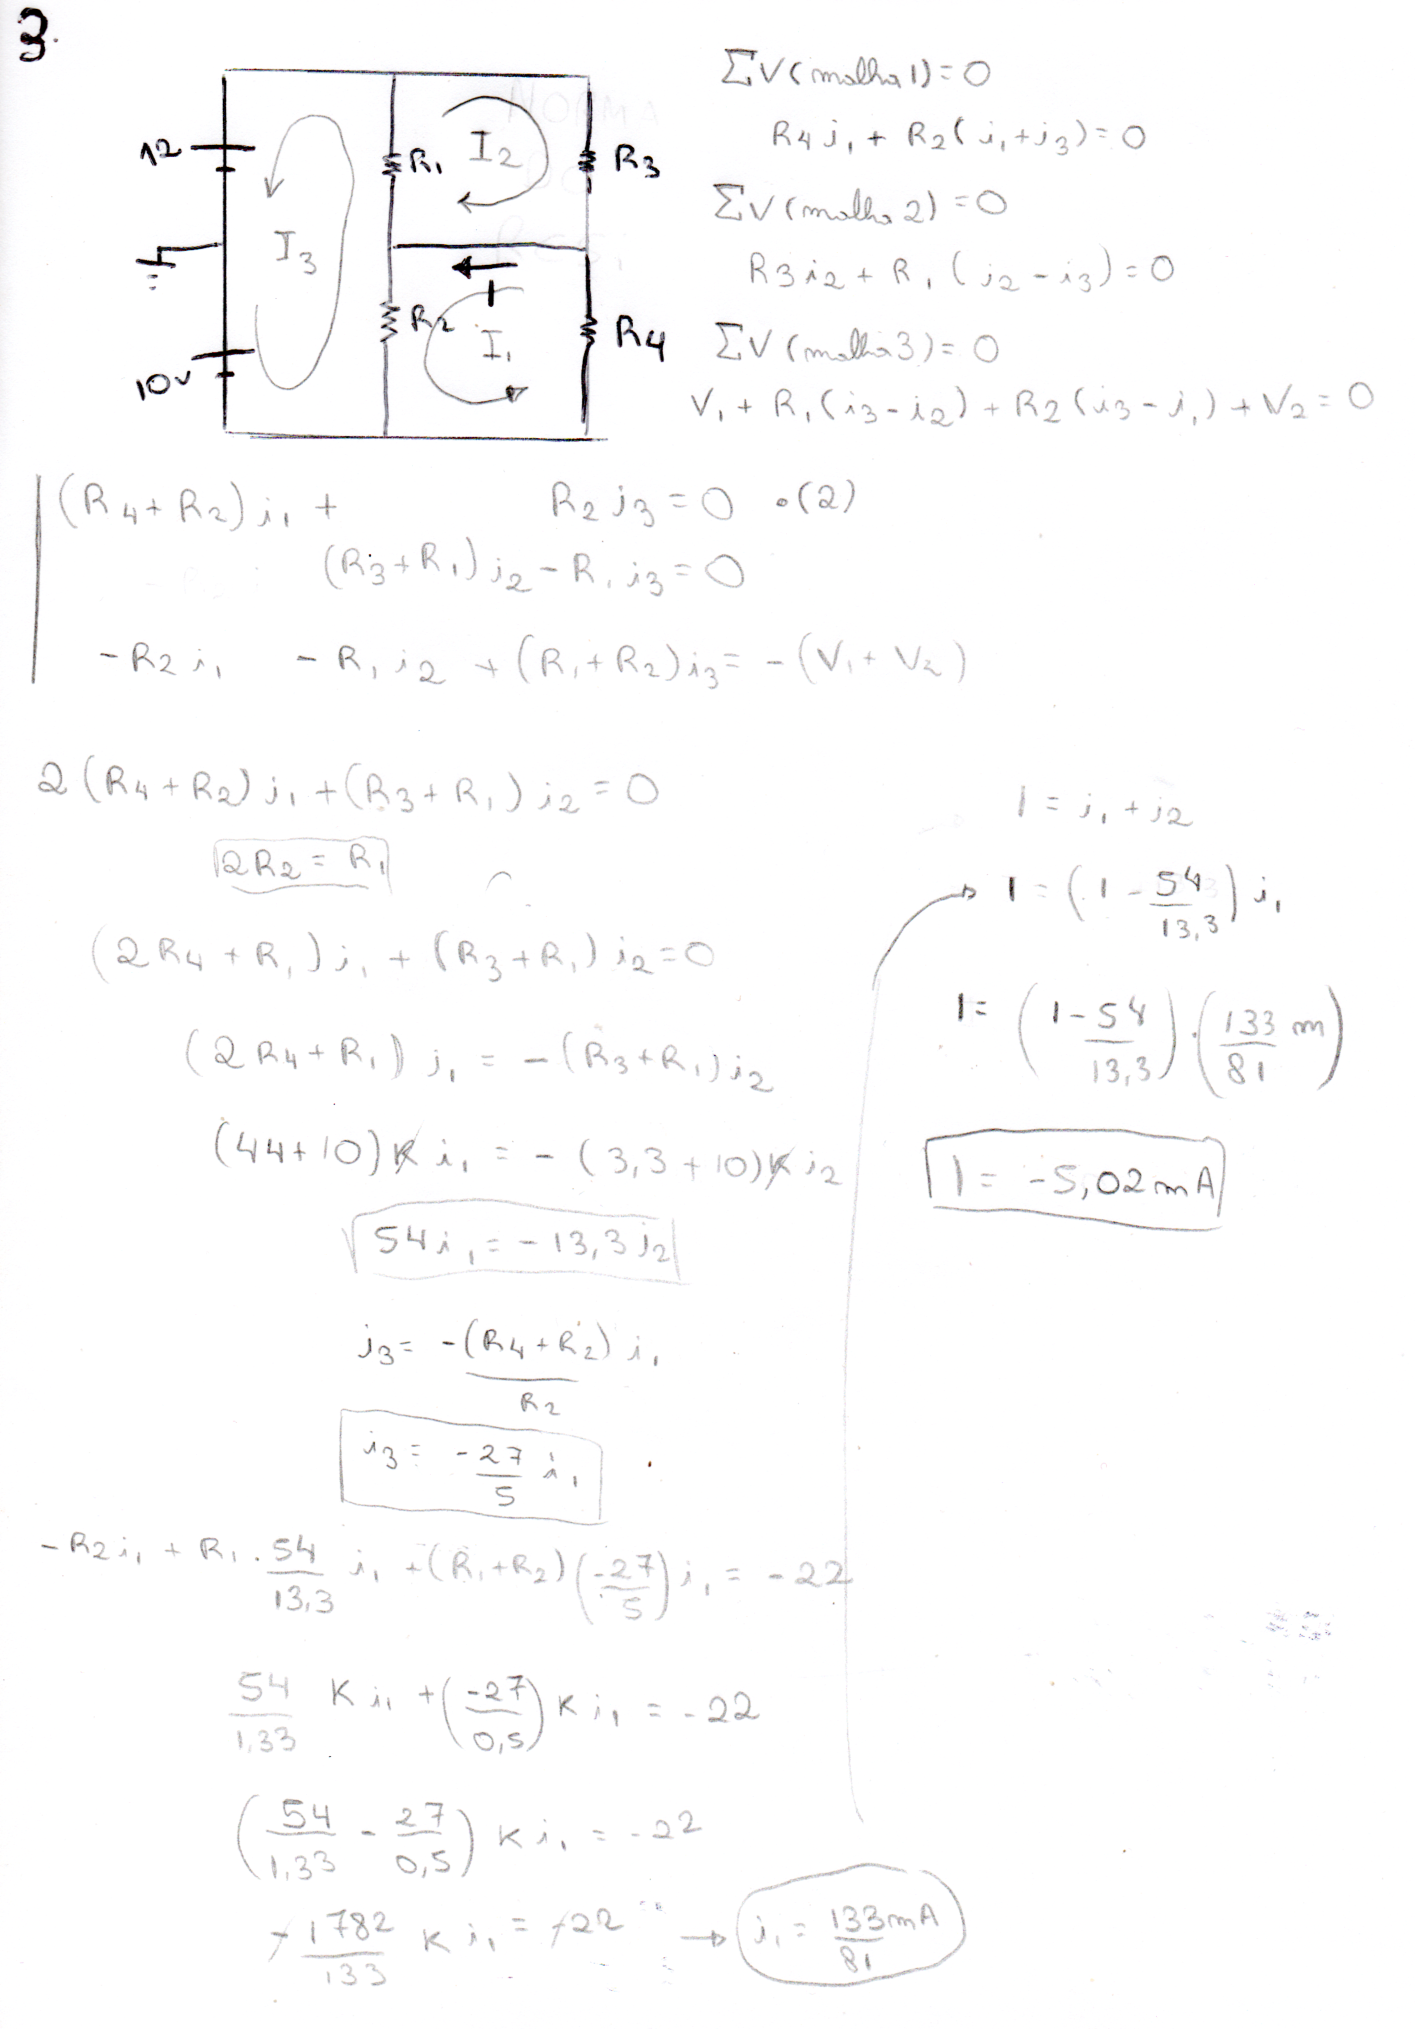 3.
12
R1
I2
R3
I3
R2
I
I1
R4
10V
ΣV(malha 1)=0
R4 i1 + R2(i1+i3)=0
ΣV(malha 2)=0
R3 i2 + R1 (i2-i3)=0
ΣV(malha 3)=0
V1 + R1(i3-i2) + R2(i3-i1) + V2 = 0
(R4+R2) i1 + R2 i3 = 0 •(2)
(R3+R1) i2 - R1 i3 = 0
-R2 i1 - R1 i2 + (R1+R2) i3 = -(V1+V2)
2(R4+R2) i1 + (R3+R1) i2 = 0
2R2 = R1
(2R4+R1) i1 + (R3+R1) i2 = 0
(2R4+R1) i1 = -(R3+R1) i2
(44+10)K i1 = -(3,3+10)K i2
54 i1 = -13,3 i2
i3 = -(R4+R2) i1
R2
i3 = -27 i1
5
-R2 i1 + R1 . 54 i1 + (R1+R2)(-27) i1 = -22
13,3 5
54 K i1 + (-27) K i1 = -22
1,33 0,5
(54 - 27) K i1 = -22
1,33 0,5
-1782 K i1 = -22 → i1 = 133mA
133 81
I = i1 + i2
I = (1 - 54) i1
13,3
I = (1-54).(133 m)
13,3 81
I = -5,02mA